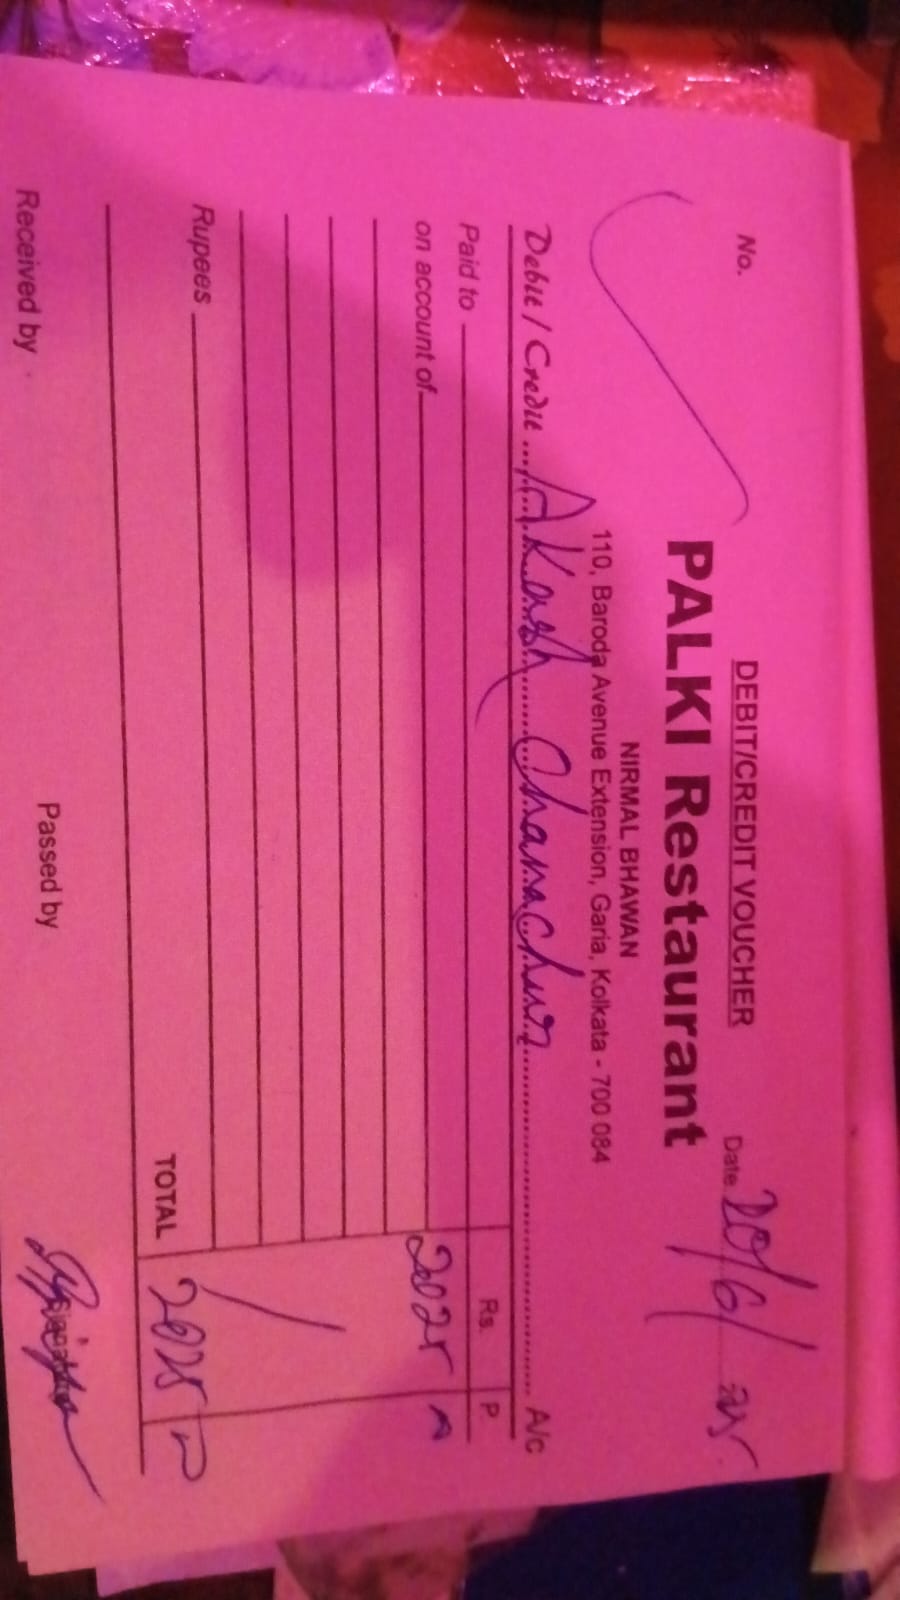 DEBIT/CREDIT VOUCHER
No.
Date 20/6/25
PALKI Restaurant
NIRMAL BHAWAN
110, Baroda Avenue Extension, Garia, Kolkata - 700 084
Debit / Credit Akash Chanachur A/c
Paid to Rs. P.
on account of 2025
Rupees
TOTAL 2025
Received by Passed by